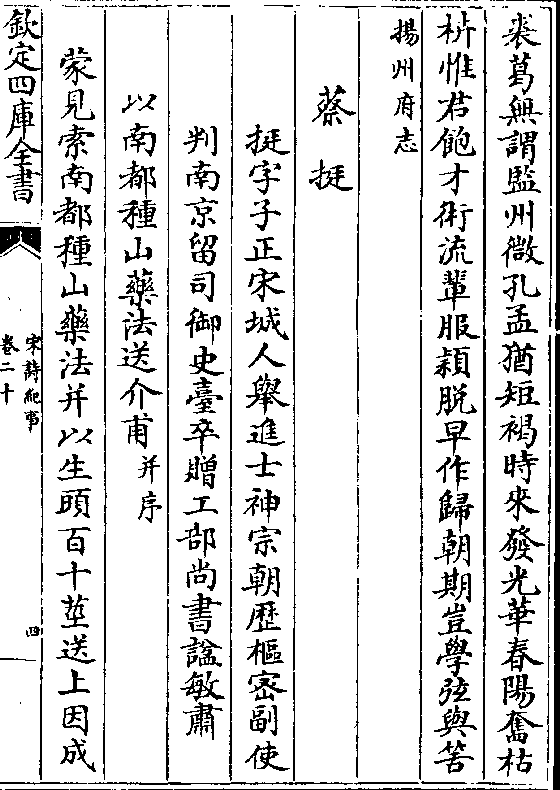 裘葛無謂監州微孔孟猶短褐時來發光華春陽奮枯
枿惟君飽才術流輩服穎脱早作歸朝期豈學弦與筈
揚州府志
蔡挺
挺字子正宋城人舉進士神宗朝歴樞宻副使
判南京留司御史臺卒贈工部尚書諡敏肅
以南都種山藥法送介甫并序
蒙見索南都種山藥法并以生頭百十莖送上因成
欽定四庫全書
宋詩紀事
卷二十
四